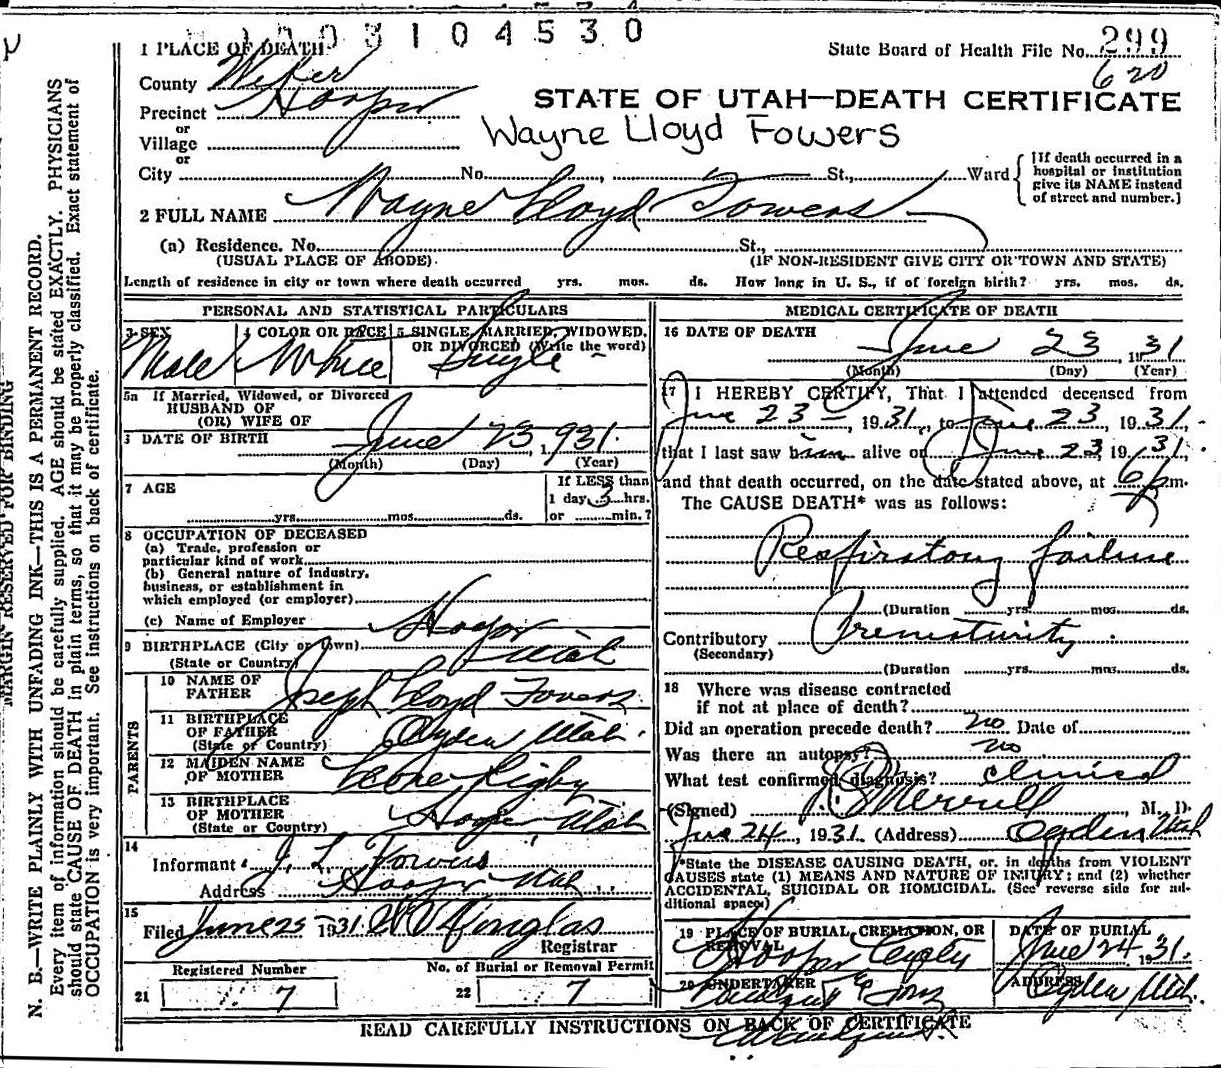 003104530
1 PLACE OF DEATH
State Board of Health File No. 299
620
County Weber
Precinct Hooper
or
Village
or
STATE OF UTAH—DEATH CERTIFICATE
Wayne Lloyd Fowers
City No. , St., Ward
[If death occurred in a
hospital or institution
give its NAME instead
of street and number.]
2 FULL NAME Wayne Lloyd Fowers
(a) Residence. No. St.,
(USUAL PLACE OF ABODE) (IF NON-RESIDENT GIVE CITY OR TOWN AND STATE)
Length of residence in city or town where death occurred yrs. mos. ds. How long in U. S., if of foreign birth? yrs. mos. ds.
PERSONAL AND STATISTICAL PARTICULARS
3 SEX Male
4 COLOR OR RACE White
5 SINGLE, MARRIED, WIDOWED,
OR DIVORCED (Write the word)
Single
5a If Married, Widowed, or Divorced
HUSBAND OF
(OR) WIFE OF
DATE OF BIRTH June 23, 1931.
(Month) (Day) (Year)
7 AGE
yrs. mos. ds.
If LESS than
1 day 3 hrs.
or min.?
8 OCCUPATION OF DECEASED
(a) Trade, profession or
particular kind of work
(b) General nature of industry,
business, or establishment in
which employed (or employer)
(c) Name of Employer
9 BIRTHPLACE (City or town) Hooper
(State or Country) Utah
PARENTS
10 NAME OF
FATHER Joseph Lloyd Fowers
11 BIRTHPLACE
OF FATHER
(State or Country) Ogden Utah.
12 MAIDEN NAME
OF MOTHER Leone Rigby
13 BIRTHPLACE
OF MOTHER
(State or Country) Hooper Utah
14
Informant J. L. Fowers
Address Hooper Utah
15
Filed June 25 1931
Registrar
Registered Number
21 7
No. of Burial or Removal Permit
22 7
MEDICAL CERTIFICATE OF DEATH
16 DATE OF DEATH
June 23, 1931
(Month) (Day) (Year)
17 I HEREBY CERTIFY, That I attended deceased from
June 23, 1931, to June 23, 1931,
that I last saw him alive on June 23, 1931,
and that death occurred, on the date stated above, at 6 p m.
The CAUSE DEATH* was as follows:
Respiratory failure
(Duration yrs. mos. ds.
Contributory Prematurity.
(Secondary)
(Duration yrs. mos. ds.
18 Where was disease contracted
if not at place of death?
Did an operation precede death? no Date of
Was there an autopsy? no
What test confirmed diagnosis? clinical
(Signed) Merrill, M. D.
June 24, 1931. (Address) Ogden Utah
*State the DISEASE CAUSING DEATH, or, in deaths from VIOLENT
CAUSES state (1) MEANS AND NATURE OF INJURY; and (2) whether
ACCIDENTAL, SUICIDAL OR HOMICIDAL. (See reverse side for ad-
ditional space)
19 PLACE OF BURIAL, CREMATION, OR
REMOVAL
Hooper
DATE OF BURIAL
June 24 1931.
20 UNDERTAKER
& Sons
ADDRESS
Ogden Utah.
READ CAREFULLY INSTRUCTIONS ON BACK OF CERTIFICATE
MARGIN RESERVED FOR BINDING
N. B.—WRITE PLAINLY WITH UNFADING INK—THIS IS A PERMANENT RECORD.
Every item of information should be carefully supplied. AGE should be stated EXACTLY. PHYSICIANS
should state CAUSE OF DEATH in plain terms, so that it may be properly classified. Exact statement of
OCCUPATION is very important. See instructions on back of certificate.